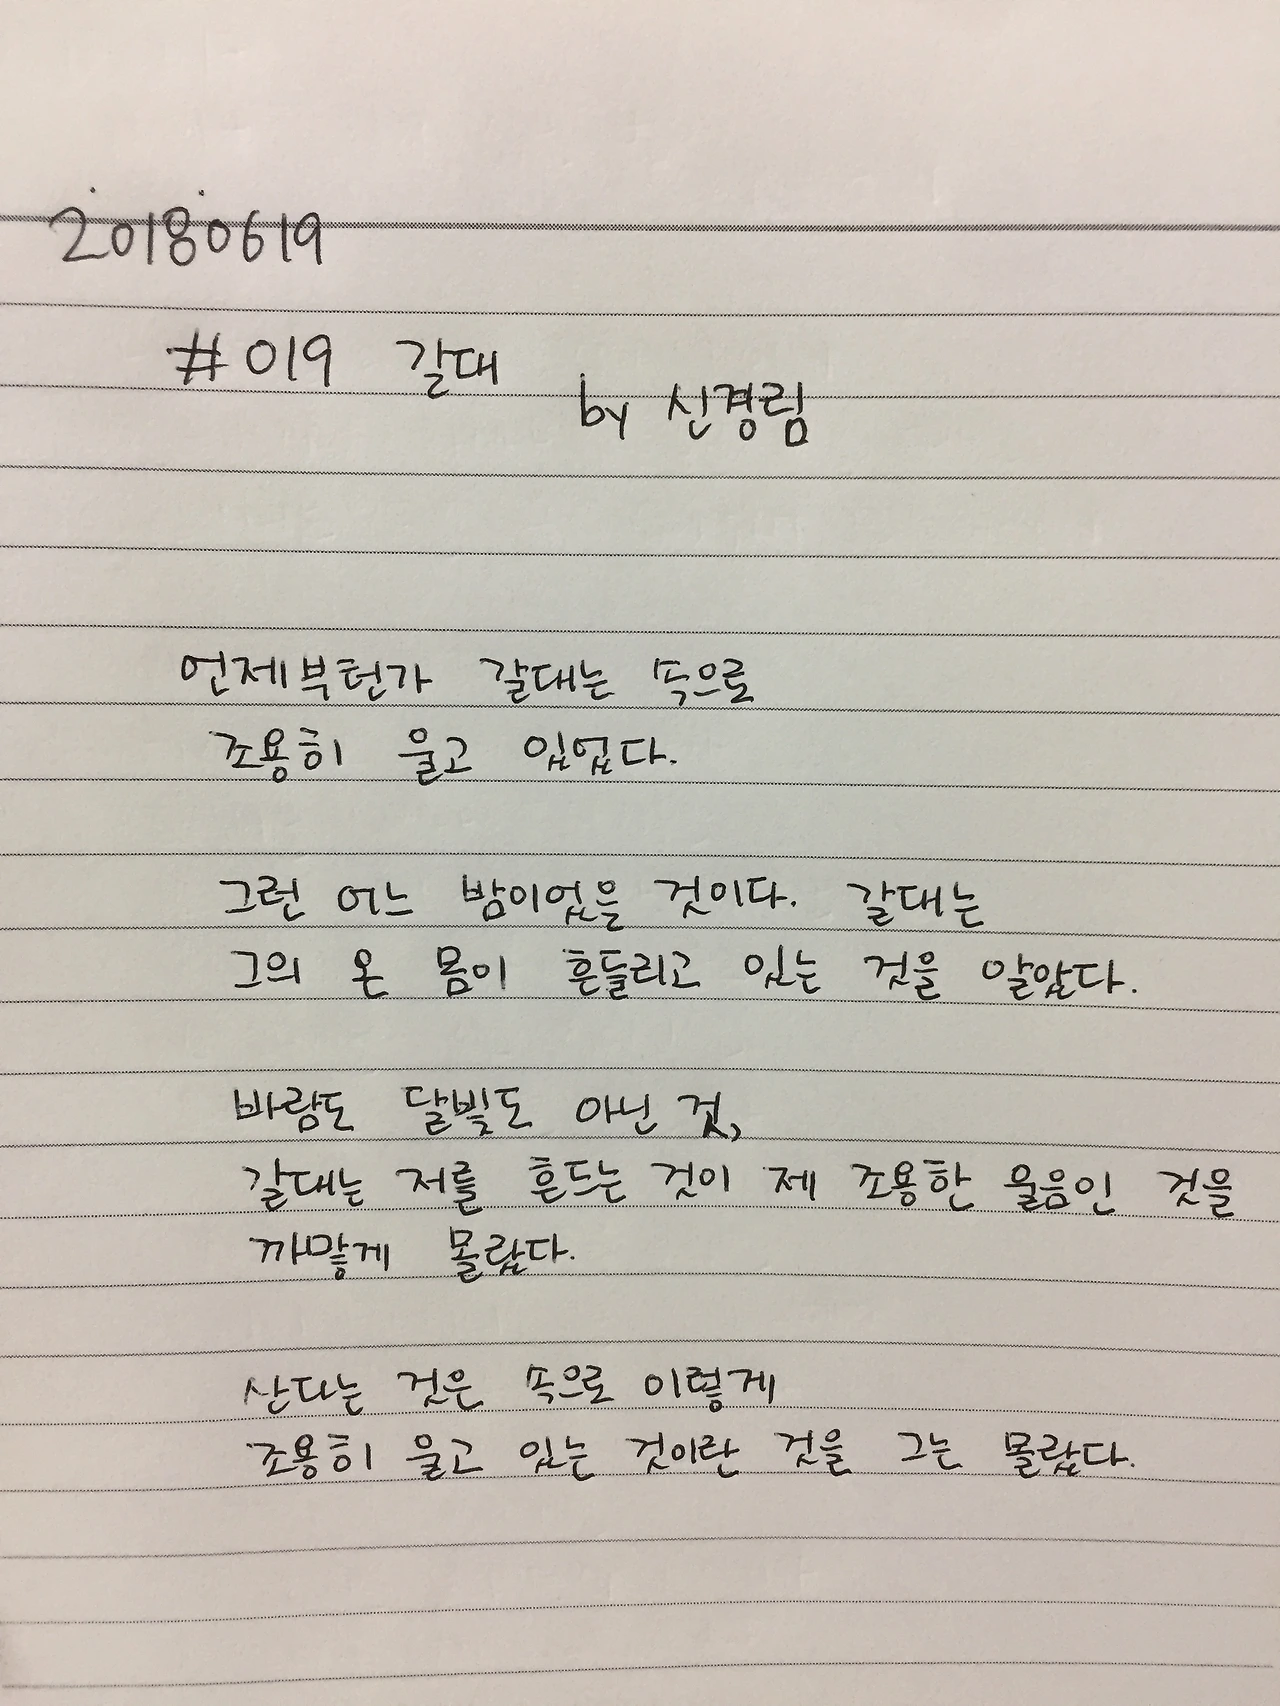 20180619
#019 갈대
by 신경림
언제부턴가 갈대는 속으로
조용히 울고 있었다.
그런 어느 밤이었을 것이다. 갈대는
그의 온 몸이 흔들리고 있는 것을 알았다.
바람도 달빛도 아닌 것,
갈대는 저를 흔드는 것이 제 조용한 울음인 것을
까맣게 몰랐다.
산다는 것은 속으로 이렇게
조용히 울고 있는 것이란 것을 그는 몰랐다.